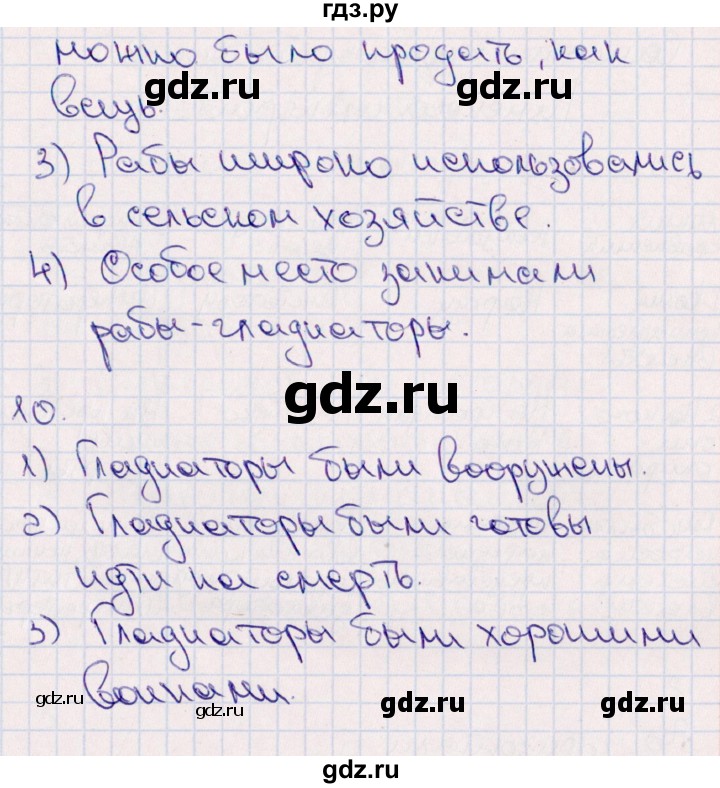 гдз.ру
можно было продать, как
gdz.ru gdz.ru
вещь.
3) Рабы широко использовались
в сельском хозяйстве.
4) Особое место занимали
рабы-гладиаторы.
gdz.ru
10.
1) Гладиаторы были вооружены.
2) Гладиаторы были готовы
идти на смерть.
3) Гладиаторы были хорошими
воинами.
gdz.ru gdz.ru gdz.ru gdz.ru
gdz.ru